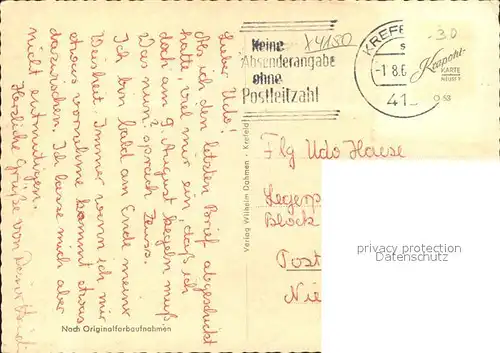 Lieber Udo!
Als ich den letzten Brief abgeschickt
hatte, viel mir ein, daß ich
doch am 9. August kegeln muß
Was nun? sprach Zeus.
Ich bin bald am Ende meiner
Weisheit. Immer wenn ich mir
etwas vornehme kommt etwas
dazwischen. Ich lasse mich aber
nicht entmutigen.
Herzliche Grüße von Deiner
Nach Originalfarbaufnahmen
Verlag Wilhelm Dahmen - Krefeld
Keine
Absenderangabe
ohne
Postleitzahl
X4180
KREFE
-1.8.6
41
-30
Krapohl
KARTE
NEUSS
O 68
Flg Udo Haese
Block
Post
Nie
privacy protection
Datenschutz